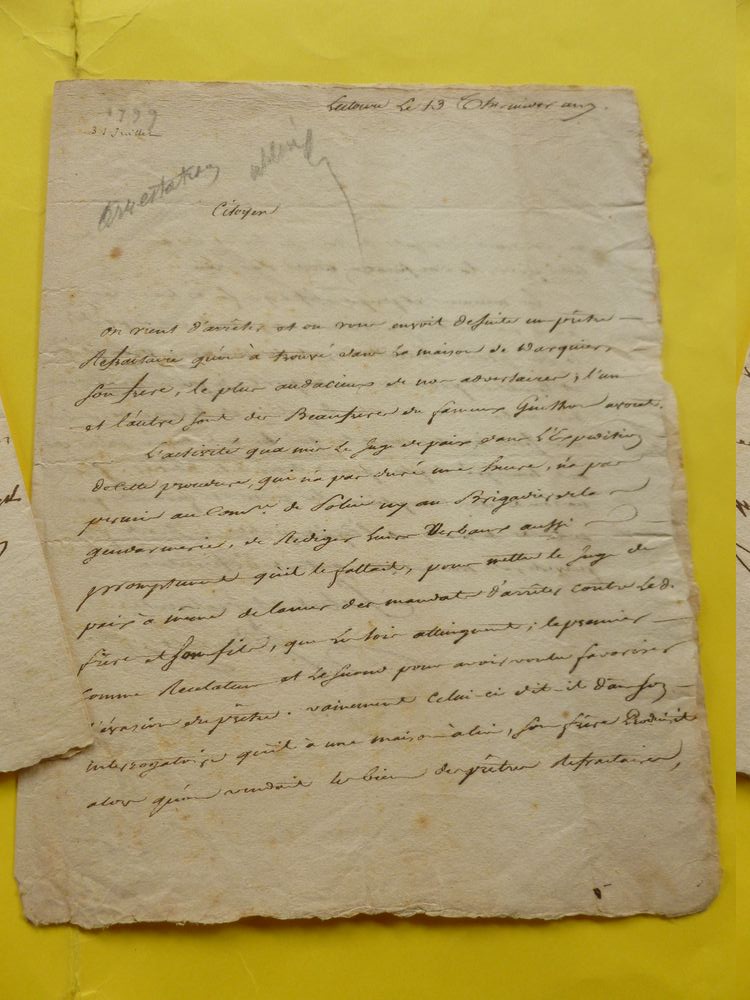 Lectoure Le 13 Thermidor an 7.
1799
31 Juillet
arrestation abbé
Citoyen
on vient d'arrêter et on vous envoit desuite un prêtre
Refractaire qu'on à trouvé dans La maison de Darquier,
son frere, le plus audacieux de nos adversaires; l'un
et l'autre sont des Beaufreres du fameux Guithon avocat.
L'activité qu'a mis Le Juge de paix dans L'Expedition
de cette procedure, qui n'a pas duré une heure, n'a pas
permis au Comre. de Police ny au Brigadier de la
gendarmerie, de Rediger Leurs Verbaux aussi
promptement qu'il le fallait, pour mettre le Juge de
paix à même de lancer des mandats d'arrêts contre Led.
frere et son fils, que La Loix atteignent; le premier
comme Recelateur et Le second pour avoir voulu favoriser
l'évasion du prêtre. vainement celui-ci dit-il dans son
interrogatoire qu'il a une maison à lui, son frère
alors qu'on vendait les biens des prêtres refractaires,